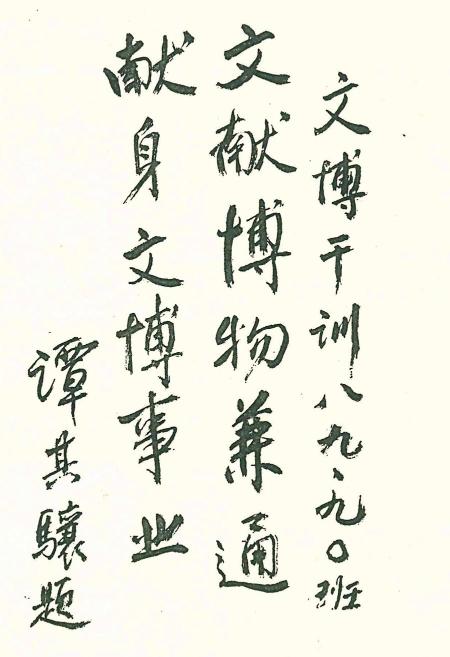 文博干训八九、九〇班
文献博物兼通
献身文博事业
谭其驤题